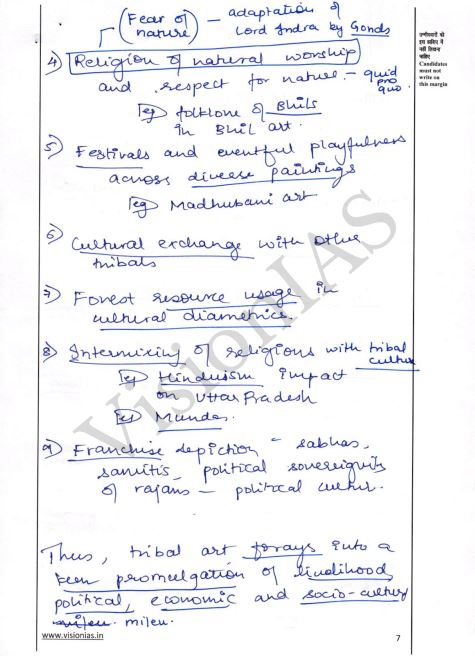 (Fear of nature) – adaptation of
Lord Indra by Gonds
उम्मीदवारों को
इस हाशिए में
नहीं लिखना
चाहिए
Candidates
must not
write on
this margin
4) Religion of natural worship
and respect for nature. – quid
pro
quo.
eg folklore of Bhils
in Bhil art.
5) Festivals and eventful playfulness
across diverse paintings
eg Madhubani art
6) Cultural exchange with other
tribals
7) Forest resource usage in
cultural diametrics.
8) Intermixing of religions with tribal
culture
eg Hinduism impact
on Uttar Pradesh
eg Mundas.
9) Franchise depiction – sabhas,
samitis, political sovereignty
of rajans – political cultur.
Thus, tribal art forays into a
keen promulgation of livelihood,
political, economic and socio-cultural
milieu.
VisionIAS
www.visionias.in
7